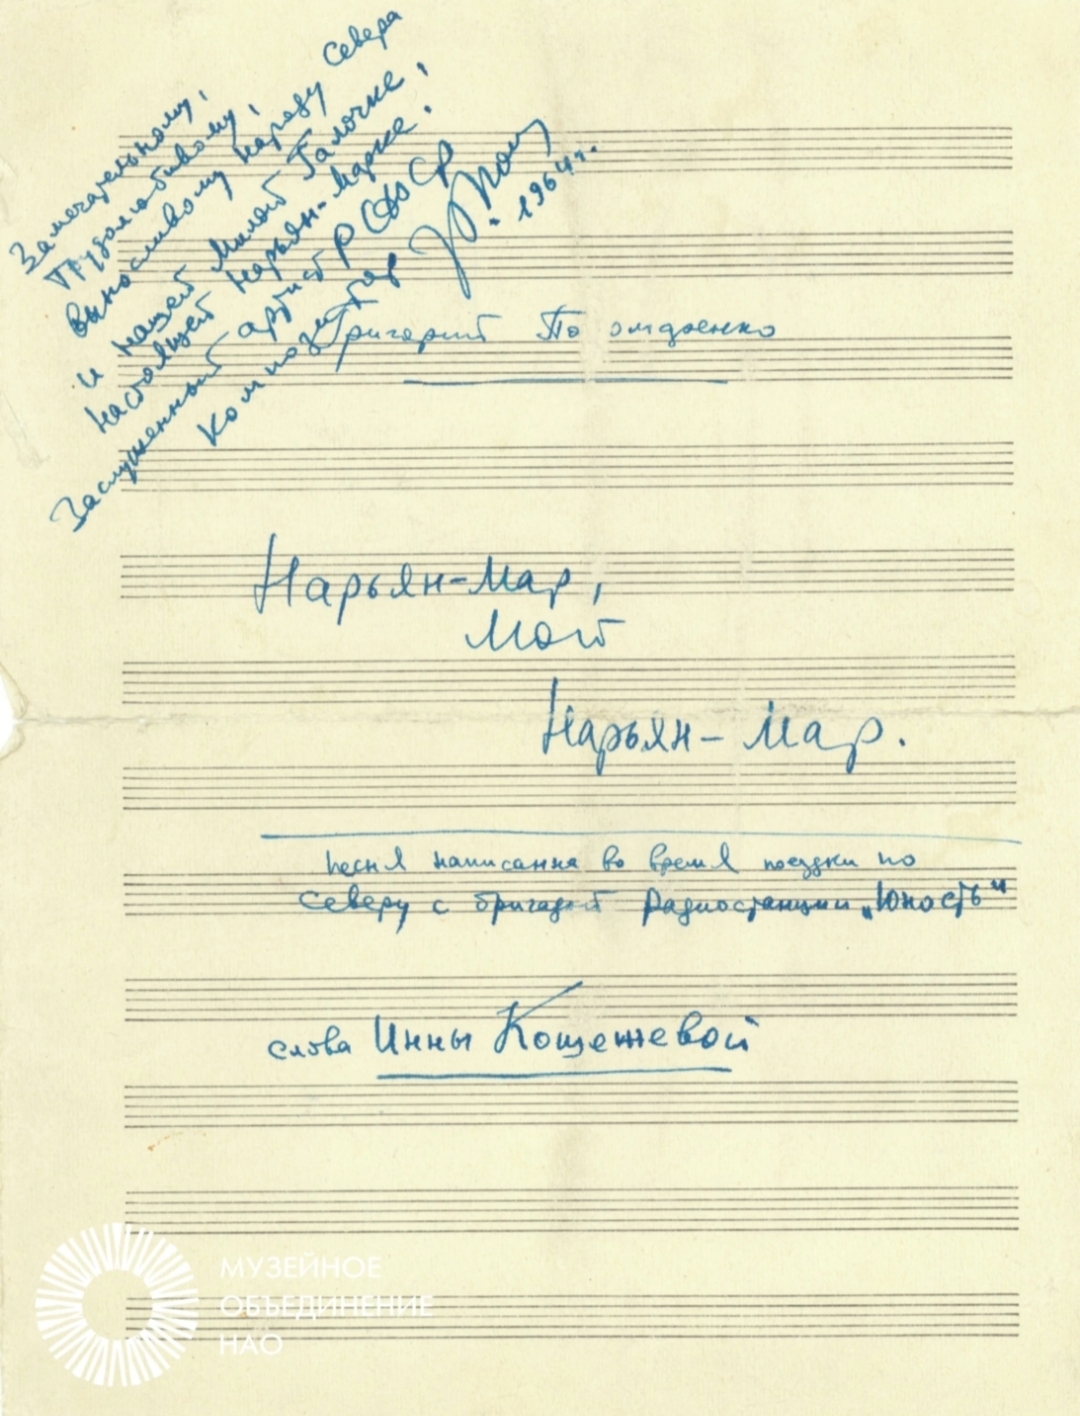 Замечательному,
трудолюбивому,
выносливому народу Севера
и нашей милой Галочке,
настоящей Нарьян-Марке!
Заслуженный артист РСФСР
композитор
1964 г.
Григорий Пономаренко
Нарьян-Мар,
мой
Нарьян-Мар.
песня написанна во время поездки по
северу с бригадой Радиостанции „Юность“
слова Инны Кощежевой
МУЗЕЙНОЕ
ОБЪЕДИНЕНИЕ
НАО